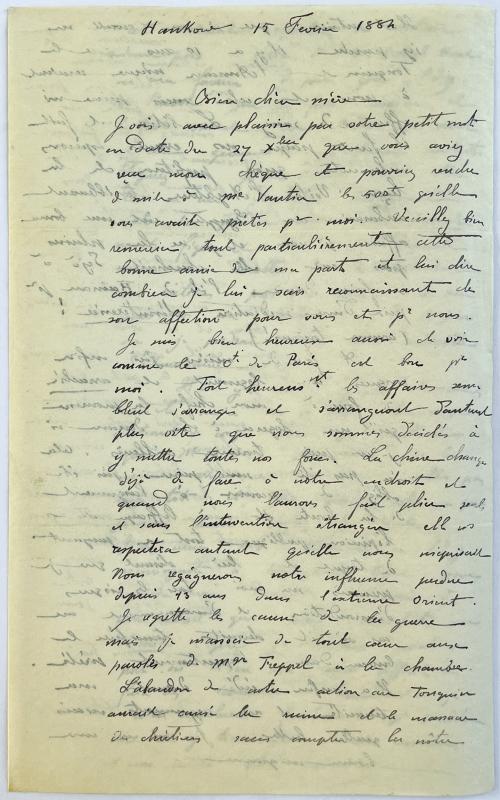 Hankow 15 Fevrier 1884
Bien chère mère
Je vois avec plaisir par votre petit mot
en date du 27 Xbre que vous aviez
recu mon chèque et pourriez rendre
à Mme Vautier les 500f qu'elle
vous avait prêtés pr moi. Veuillez bien
remercier tout particulièrement cette
bonne amie de ma part et lui dire
combien je lui suis reconnaissant de
son affection pour vous et pr nous.
Je suis bien heureux aussi de voir
comme le Ct de Paris est bon pr
moi. Fort heureusnt les affaires sem
blent s'arranger et s'arrangeront d'autant
plus vite que nous sommes décidés à
y mettre toutes nos forces. La chine change
déjà de face à notre endroit et
quand nous l'aurons fait plier seuls,
et sans l'intervention étrangère elle ns
respectera autant qu'elle nous méprisait
Nous regagnerons notre influence perdue
depuis 13 ans dans l'extrême Orient.
Je regrette les causes de la guerre
mais je m'associe de tout cœur aux
paroles de Mgr Freppel à la chambre.
L'abandon de notre action au Tonquin
aurait causé la ruine et le massacre
des chrétiens sans compter les nôtres